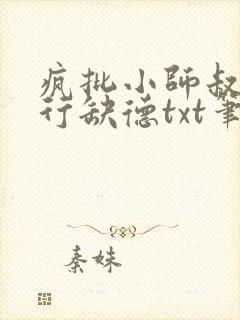 疯批小师叔
行缺德txt笔
秦妹